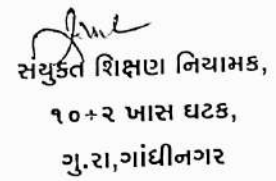 સંયુક્ત શિક્ષણ નિયામક,
૧૦+૨ ખાસ ઘટક,
ગુ.રા,ગાંધીનગર